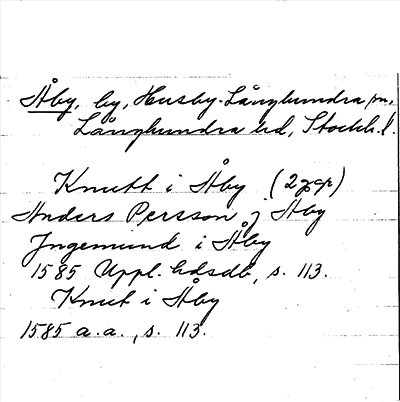 Åby, by, Husby-Långhundra sn,
Långhundra hd, Stockh. l.
Knutt i Åby (2 ggr)
Anders Persson j Åby
Jngemund i Åby
1585 Uppl. hdsdb, s. 113.
Knut i Åby
1585 a.a., s. 113.